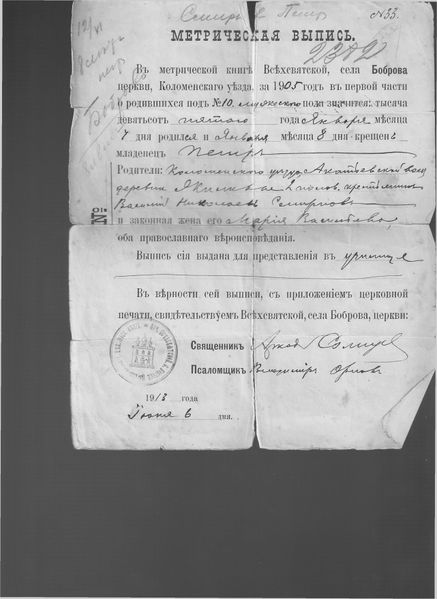 Смирн Петр
№33.
МЕТРИЧЕСКАЯ ВЫПИСЬ.
2302
Въ метрической книгѣ Всѣхсвятской, села Боброва
церкви, Коломенскаго уѣзда, за 1905 годъ въ первой части
о родившихся подъ №10. мужескаго пола значится: тысяча
девятьсот пятаго года Января мѣсяца
7 дня родился и Января мѣсяца 8 дня крещенъ
младенец Петръ
Родители: Коломенскаго уѣзда, Акатьевской вол.
деревни
Василій Николаевъ Смирновъ
и законная жена его Марія Васильева,
оба православнаго вѣроисповѣданія.
Выпись сія выдана для представленія въ училище
Въ вѣрности сей выписи, съ приложеніем церковной
печати, свидѣтельствуем Всѣхсвятской, села Боброва, церкви:
Священник
Псаломщик Владиміръ Орловъ
1913 года
Іюня 6 дня.